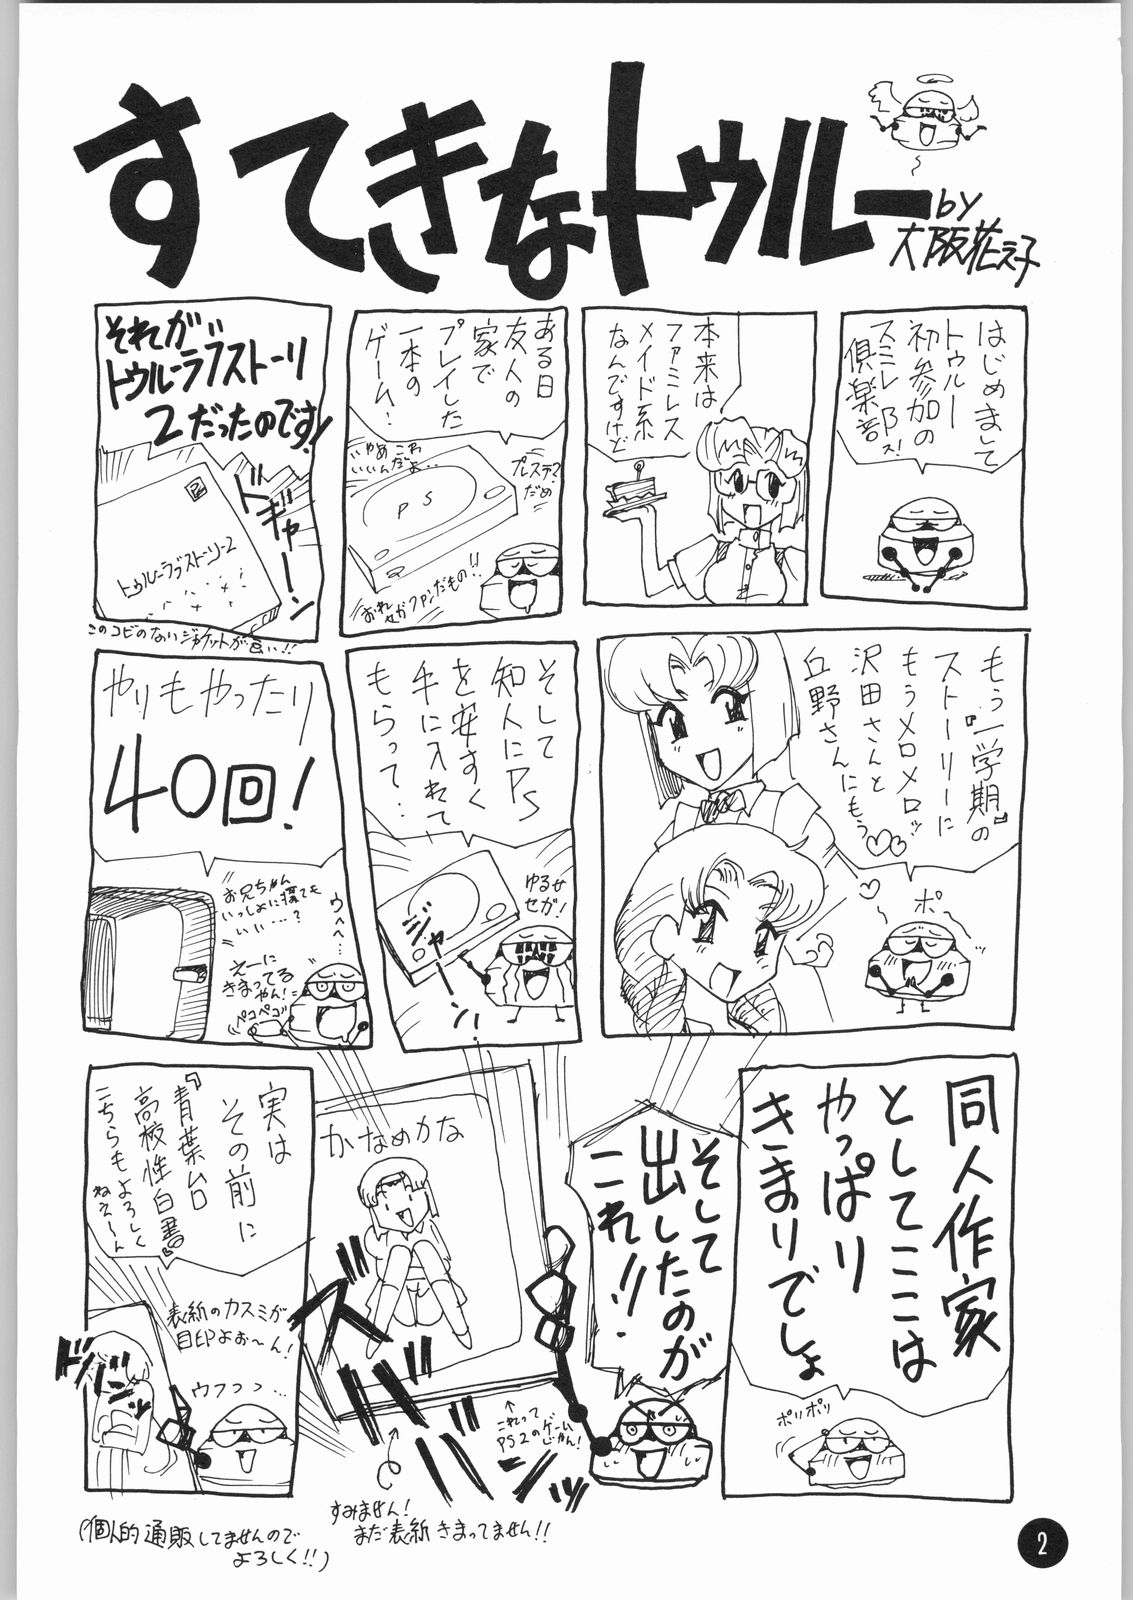 すてきなトゥルー
by
大阪花え子
はじめまして
トゥルー
初参加の
スミレ
倶楽部ス!
本来は
ファミレス
メイド系
なんですけど
ある日
友人の
家で
プレイした
一本の
ゲーム!
いやぁ これ
いいんだよ…
プレステ?
だめ
PS
おれ
セガファンだもの!!
それが
トゥルーラブストーリー
2だったのです!
ドギャーン
トゥルーラブストーリー2
このコビのないジャケットが良い!!
もう『一学期』の
ストーリーに
もうメロメロッ
沢田さんと
丘野さんにもう♡♡
ポッ
そして
知人にPS
を安すく
手に入れて
もらって…
ゆるせ
セガ!
ジャーン!
やりもやったり
40回!
お兄ちゃん
いっしょに寝ても
いい…?
ウヘヘ…
えーに
きまってる
やん!
ペコペコ
同人作家
としてここは
やっぱり
きまりでしょ
ポリポリ
そして
出したのが
これ!!
かなめかな
ズババンッ
↑
これって
PS2のゲーム
じゃん!
すみません!
まだ表紙きまってません!!
実は
その前に
『青葉ムロ
高校性白書』
こちらもよろしく
ねえーん
表紙のカスミが
目印よぉ〜ん!
ドバンッ
ウフっっ…
(個人的通販してませんので
よろしく!!)
2